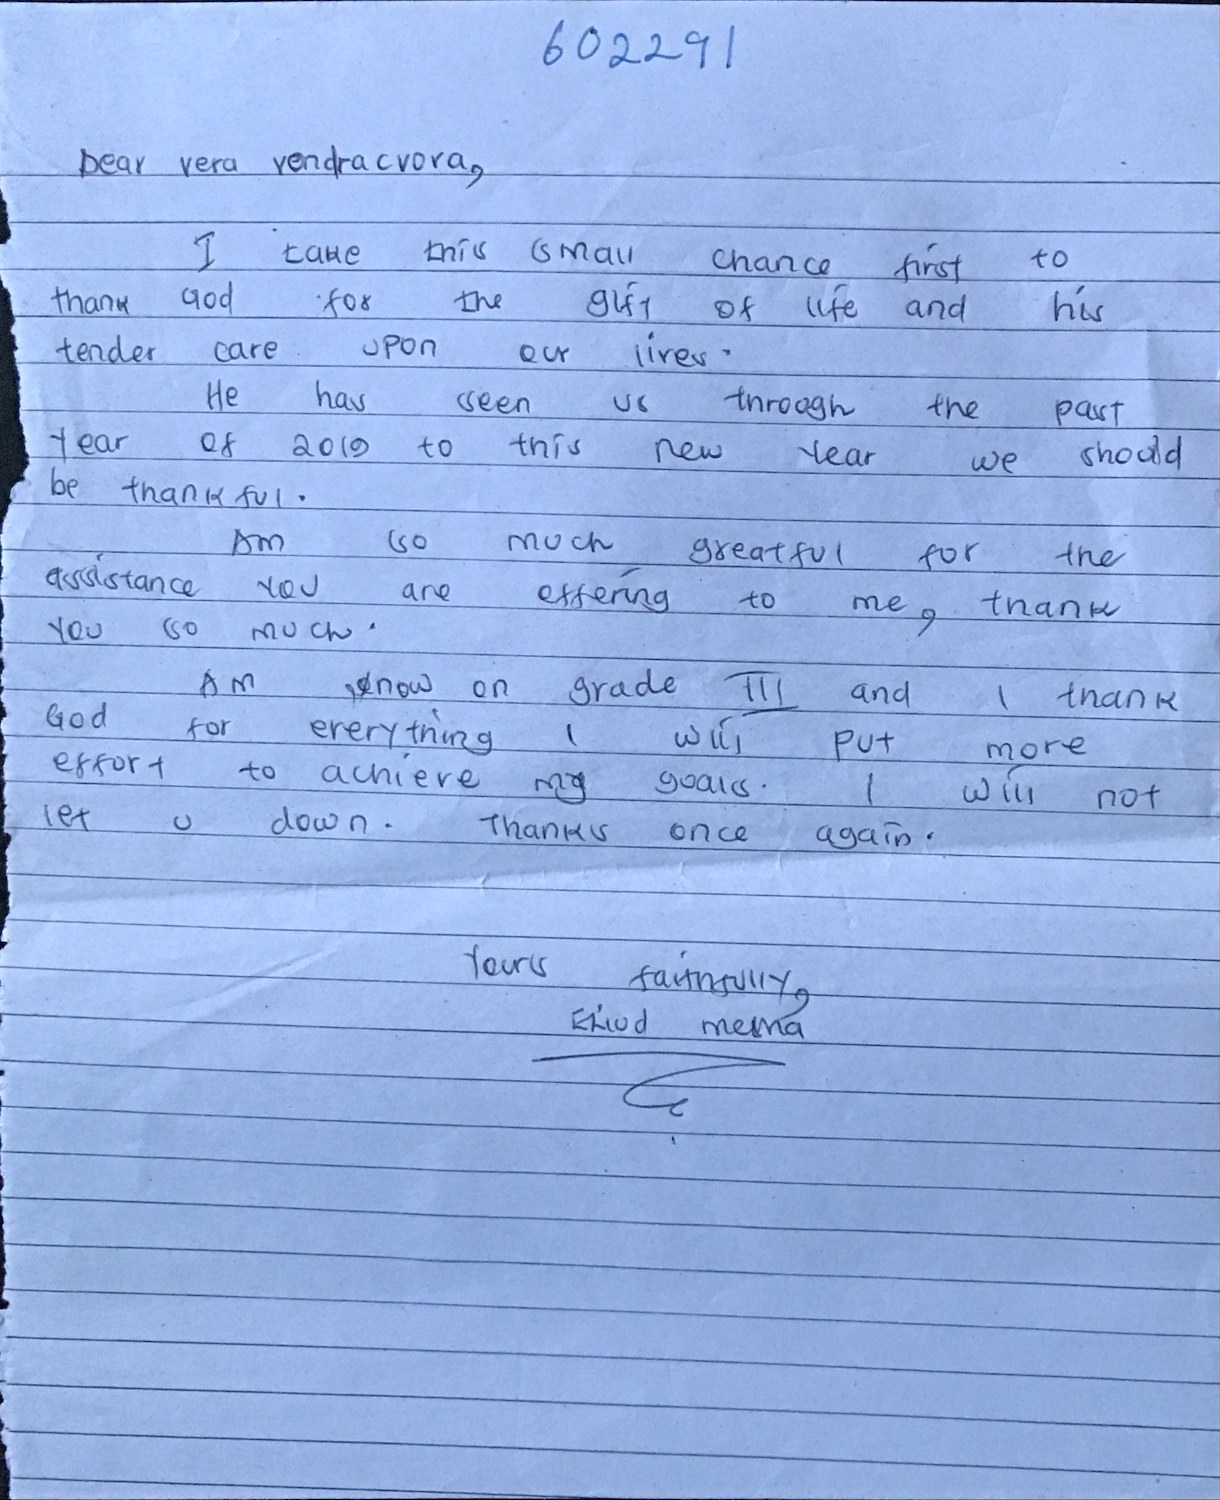 602291
Dear vera vendracvora,
I take this small chance first to
thank God for the gift of life and his
tender care upon our lives.
He has seen us through the past
Year of 2019 to this new Year we should
be thankful.
Am so much greatful for the
assistance you are offering to me, thank
you so much.
Am now on grade III and I thank
God for everything I will put more
effort to achieve my goals. I will not
let u down. Thanks once again.
Yours faithfully,